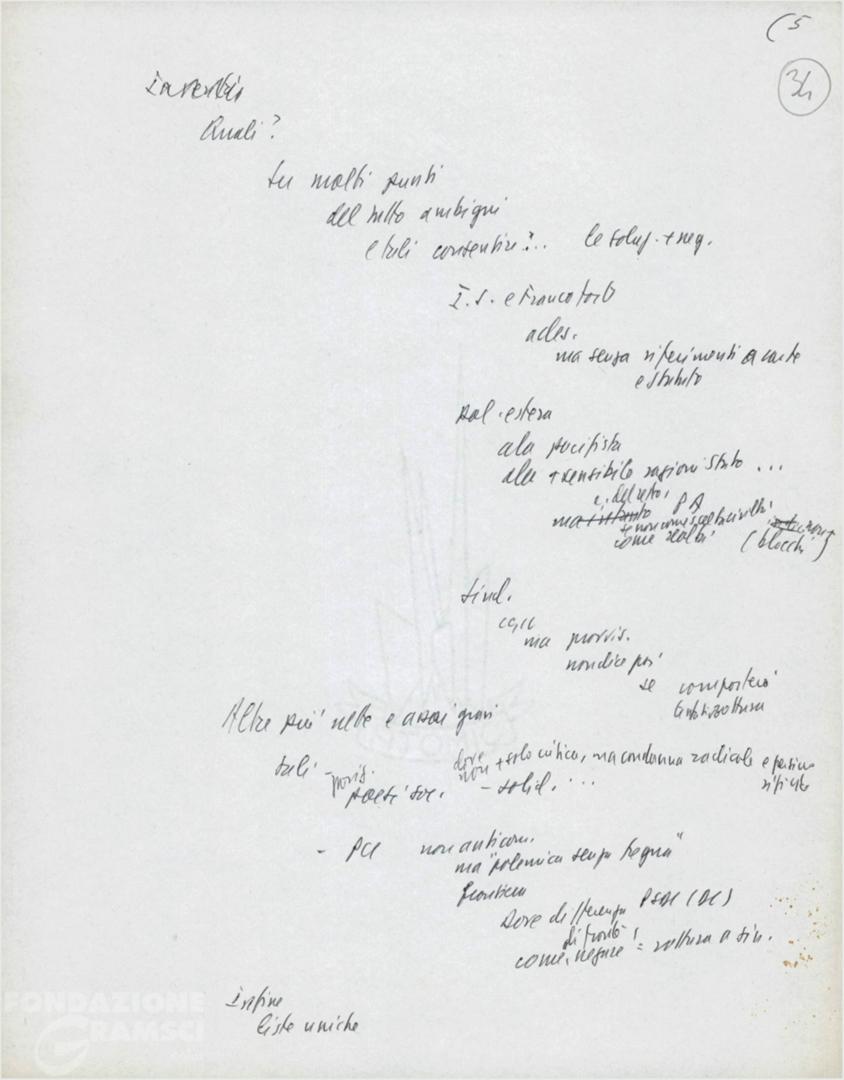 (5
34
Invertir
Quali?
su molti punti
del tutto ambigui
e tali consentire?.. le soluz. + neg.
I.S. e Francoforte
ades.
ma senza riferimenti a carte
e statuto
pol. estera
ala pacifista
ala + sensibile ragioni Stato ...
ma PA
se non come
come (blocchi)
sind.
CGIL
ma provvis.
non dice poi
se comporterà
Altre più nette e assai gravi
tali - posiz. dove non + solo critica, ma condanna radicale e persino
paesi soc. - solid. ... rifiuto
- PCI non anticom.
ma "polemica senza tregua"
frontiera
Dove differenza PSDI (DC)
di fronte!
come negare = rottura a sin.
Infine
liste uniche
FONDAZIONE
GRAMSCI